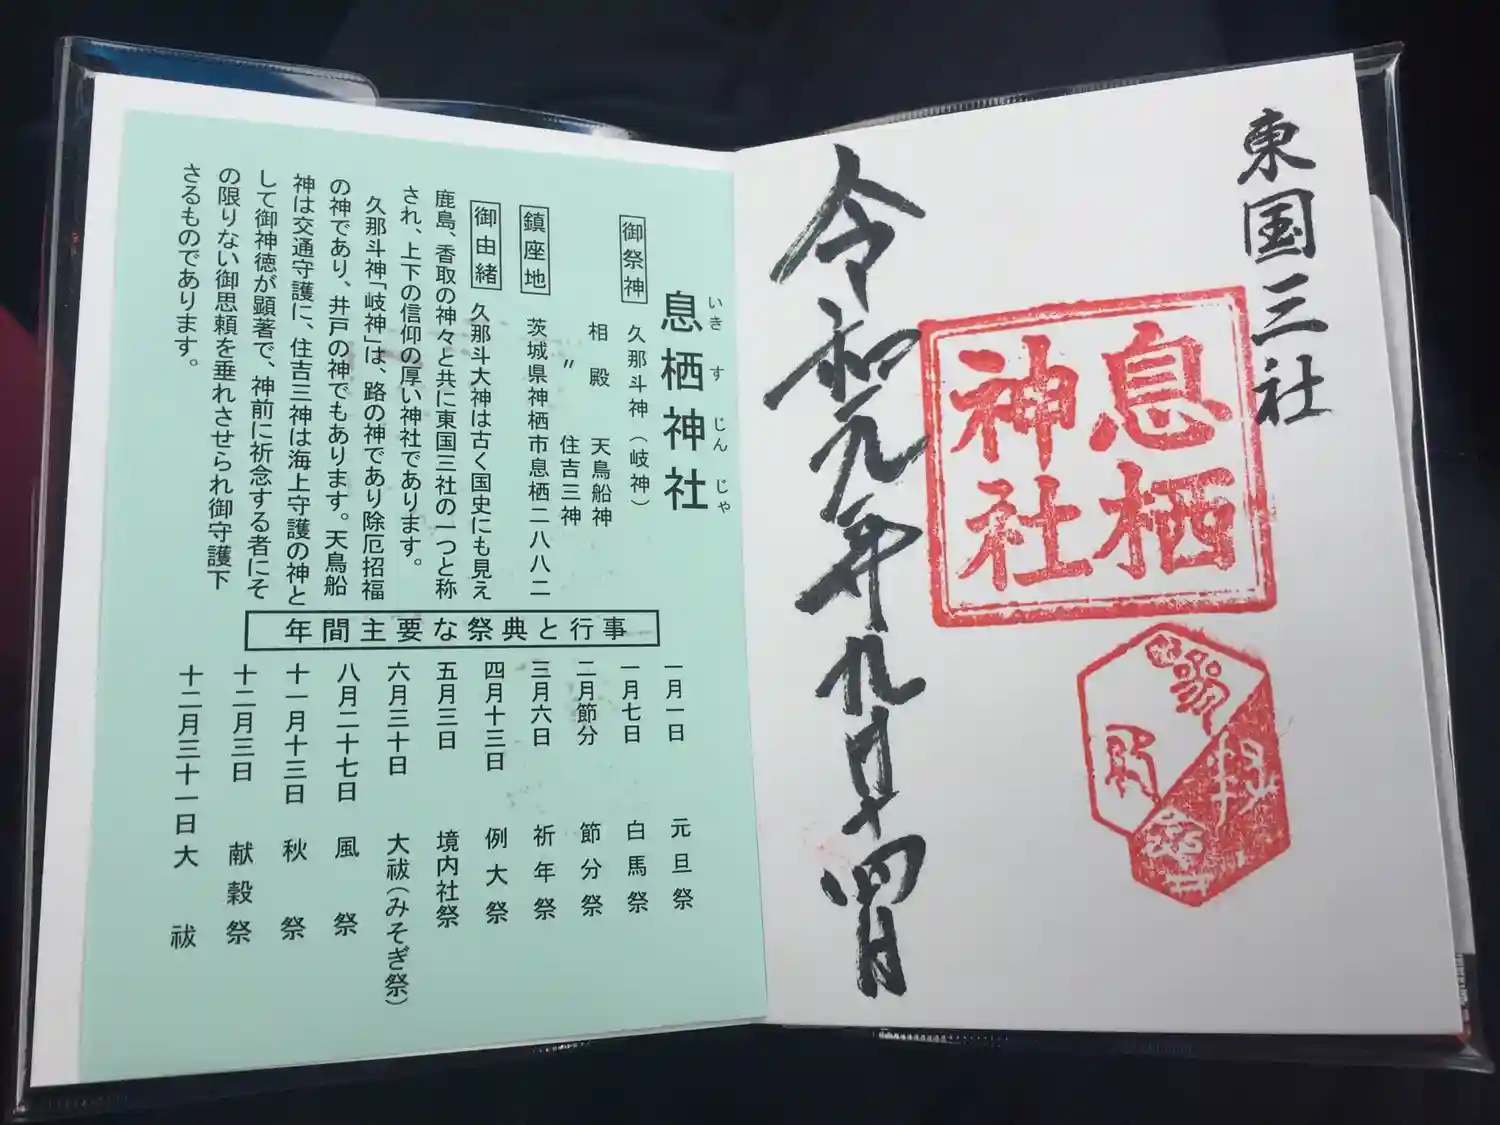 東国三社
息栖
神社
令和元年九月十四日
息栖神社
いきすじんじゃ
御祭神 久那斗神(岐神)
相殿 天鳥船神
〃 住吉三神
鎮座地 茨城県神栖市息栖二八八二
御由緒 久那斗大神は古く国史にも見え
鹿島、香取の神々と共に東国三社の一つと称
され、上下の信仰の厚い神社であります。
久那斗神「岐神」は、路の神であり除厄招福
の神であり、井戸の神でもあります。天鳥船
神は交通守護に、住吉三神は海上守護の神と
して御神徳が顕著で、神前に祈念する者にそ
の限りない御思頼を垂れさせられ御守護下
さるものであります。
年間主要な祭典と行事
一月一日 元旦祭
一月七日 白馬祭
二月節分 節分祭
三月六日 祈年祭
四月十三日 例大祭
五月三日 境内社祭
六月三十日 大祓(みそぎ祭)
八月二十七日 風祭
十一月十三日 秋祭
十二月三日 献穀祭
十二月三十一日 大祓